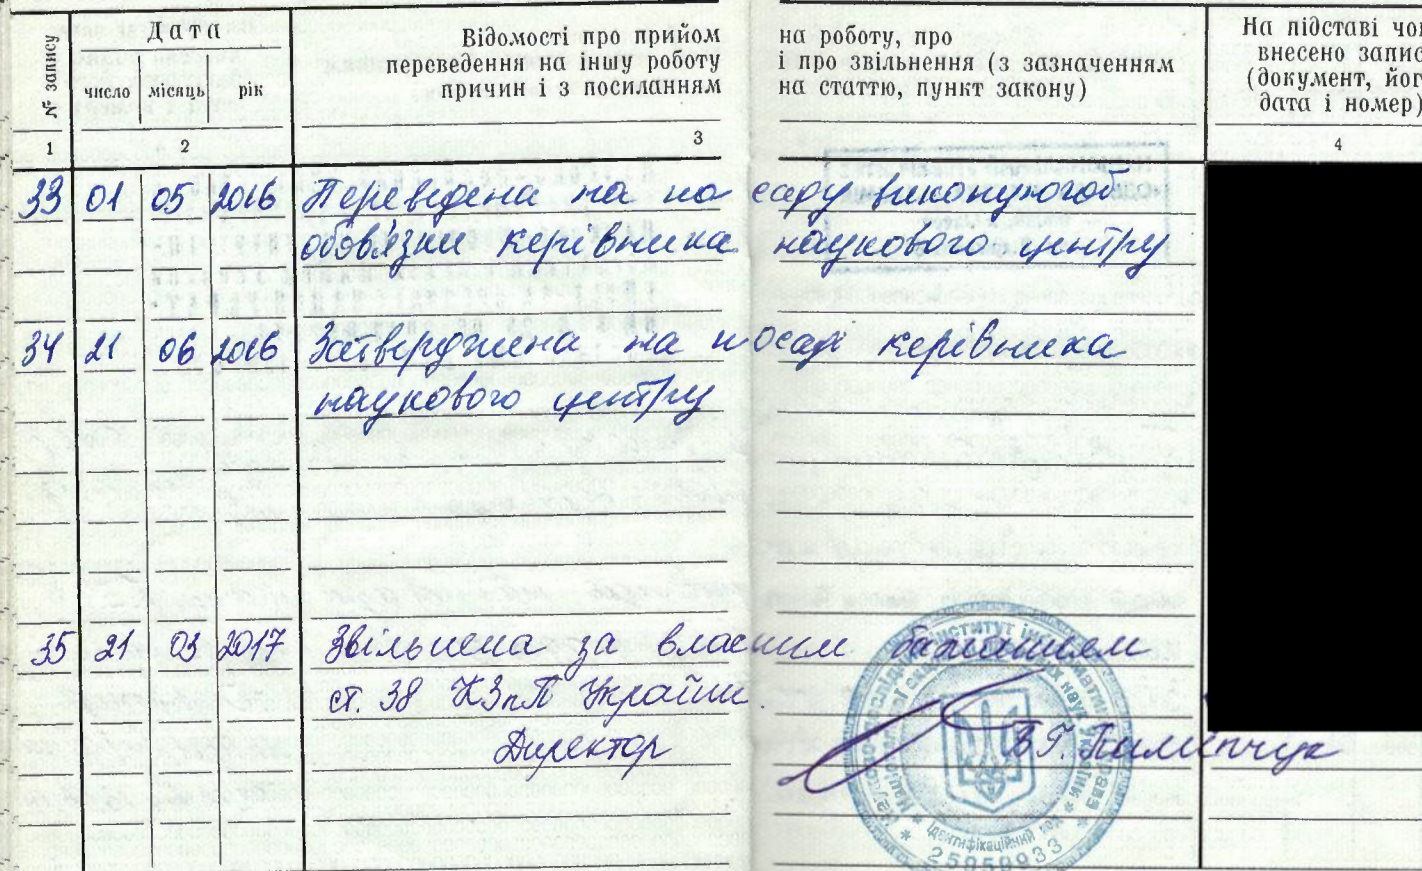 № запису
Дата
число місяць рік
Відомості про прийом на роботу, про
переведення на іншу роботу і про звільнення (з зазначенням
причин і з посиланням на статтю, пункт закону)
На підставі чог
внесено запис
(документ, його
дата і номер)
1 2 3 4
33 01 05 2016 Переведена на посаду виконуючої
обов'язки керівника наукового центру
34 21 06 2016 Затверджена на посаді керівника
наукового центру
35 21 03 2017 Звільнена за власним бажанням
ст. 38 КЗпП України.
Директор В.Г. Пилипчук
ідентифікаційний код
25959933